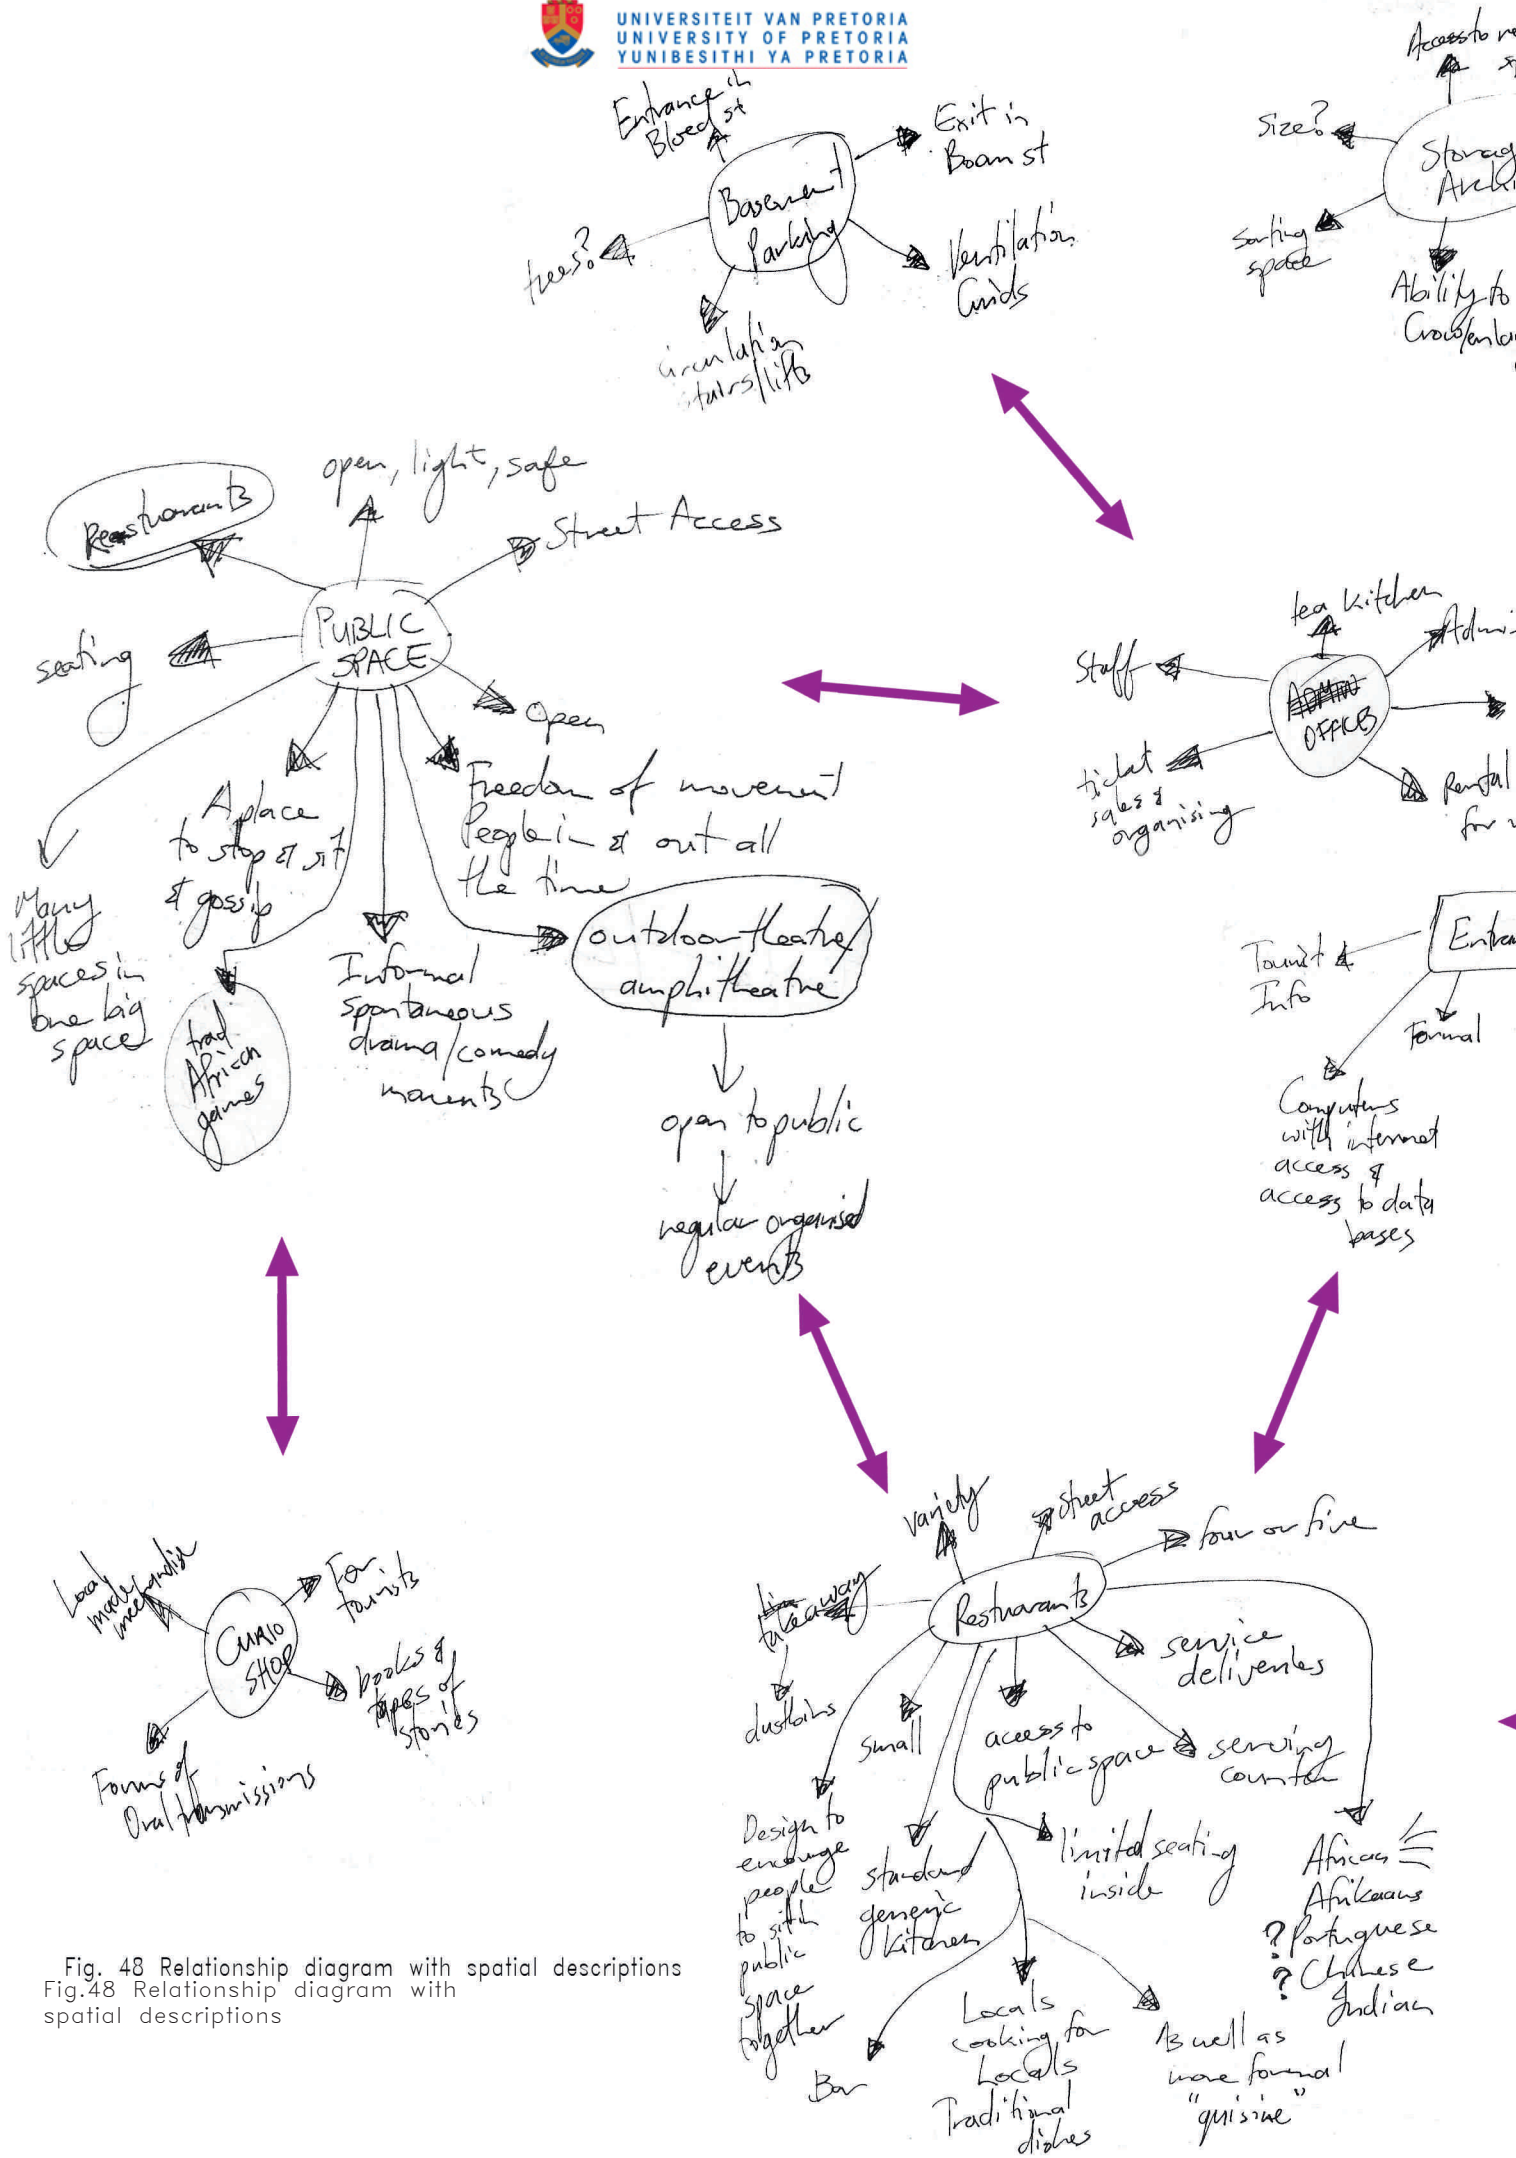 UNIVERSITEIT VAN PRETORIA
UNIVERSITY OF PRETORIA
YUNIBESITHI YA PRETORIA
Entrance in
Bloed st
Exit in
Boom st
Basement
Parking
trees?
Ventilation
Grids
circulation
stairs/lifts
Access to
size?
Storag
Archi
sorting
space
Ability to
Grow/enla
Reastuarants
open, light, safe
Street Access
PUBLIC
SPACE
seating
Open
A place
to stop & sit
& gossip
Freedom of movement
People in & out all
the time
Many
little
spaces in
one big
space
trad
African
games
Informal
spontaneous
drama/comedy
moments
outdoor theatre/
amphitheatre
open to public
regular organised
events
tea kitchen
Admi
Staff
ADMIN
OFFICES
ticket
sales &
organising
Rental
for
Entra
Tourist
Info
Formal
Computers
with internet
access &
access to data
bases
Local
made
merchandise
For
tourists
CURIO
SHOP
books &
tapes of
stories
Forms of
Oral transmissions
variety
street
access
four or five
takeaway
Restuarants
dustbins
small
access to
public space
service
deliveries
serving
counter
Design to
encourage
people
to sit in
public
space
together
standard
generic
kitchen
limited seating
inside
African
Afrikaans
? Portuguese
? Chinese
Indian
Bar
Locals
cooking for
Locals
Traditional
dishes
As well as
more formal
"quisine"
Fig. 48 Relationship diagram with spatial descriptions
Fig.48 Relationship diagram with
spatial descriptions